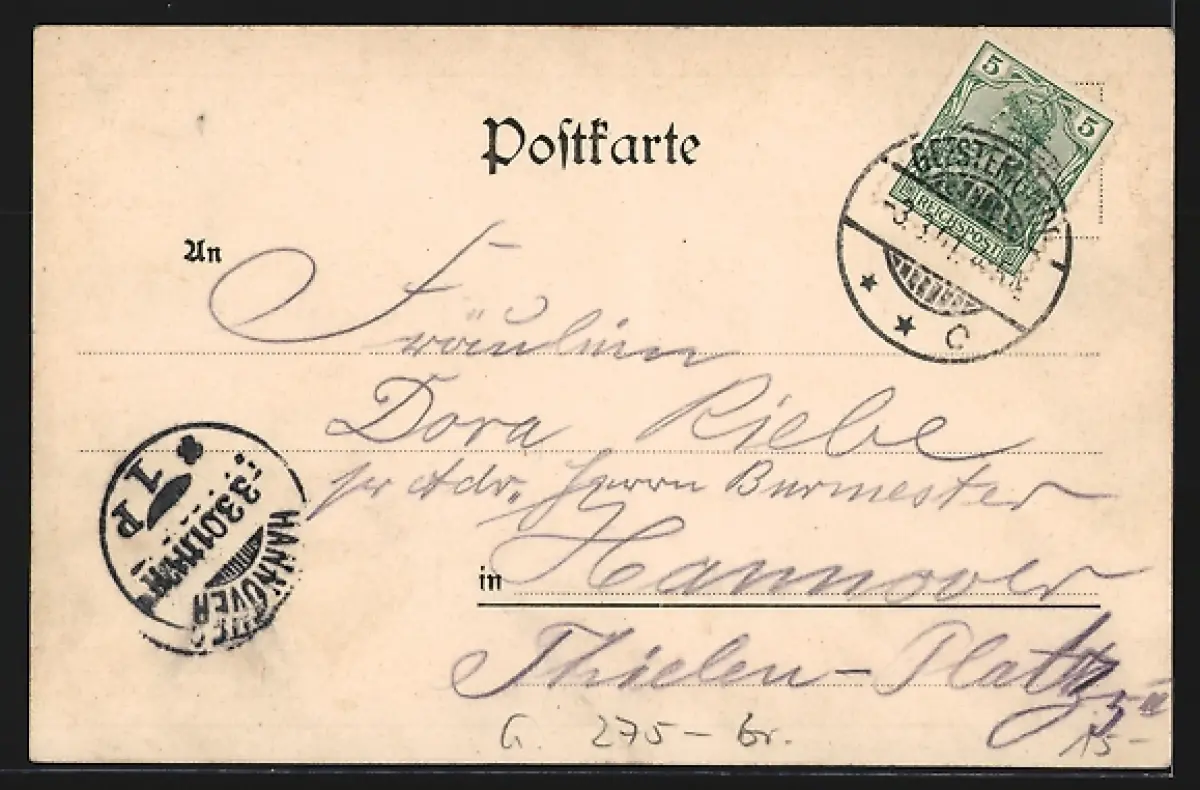 Postkarte
5 5
REICHSPOST
GEESTEMÜNDE
-3.3.01.
C
An
Fräulein
Dora Riebe
pr Adr. Herrn Burmester
in Hannover
Thielen-Platz
HANNOVER
3.3.01
1 P
G. 275- br.
15-